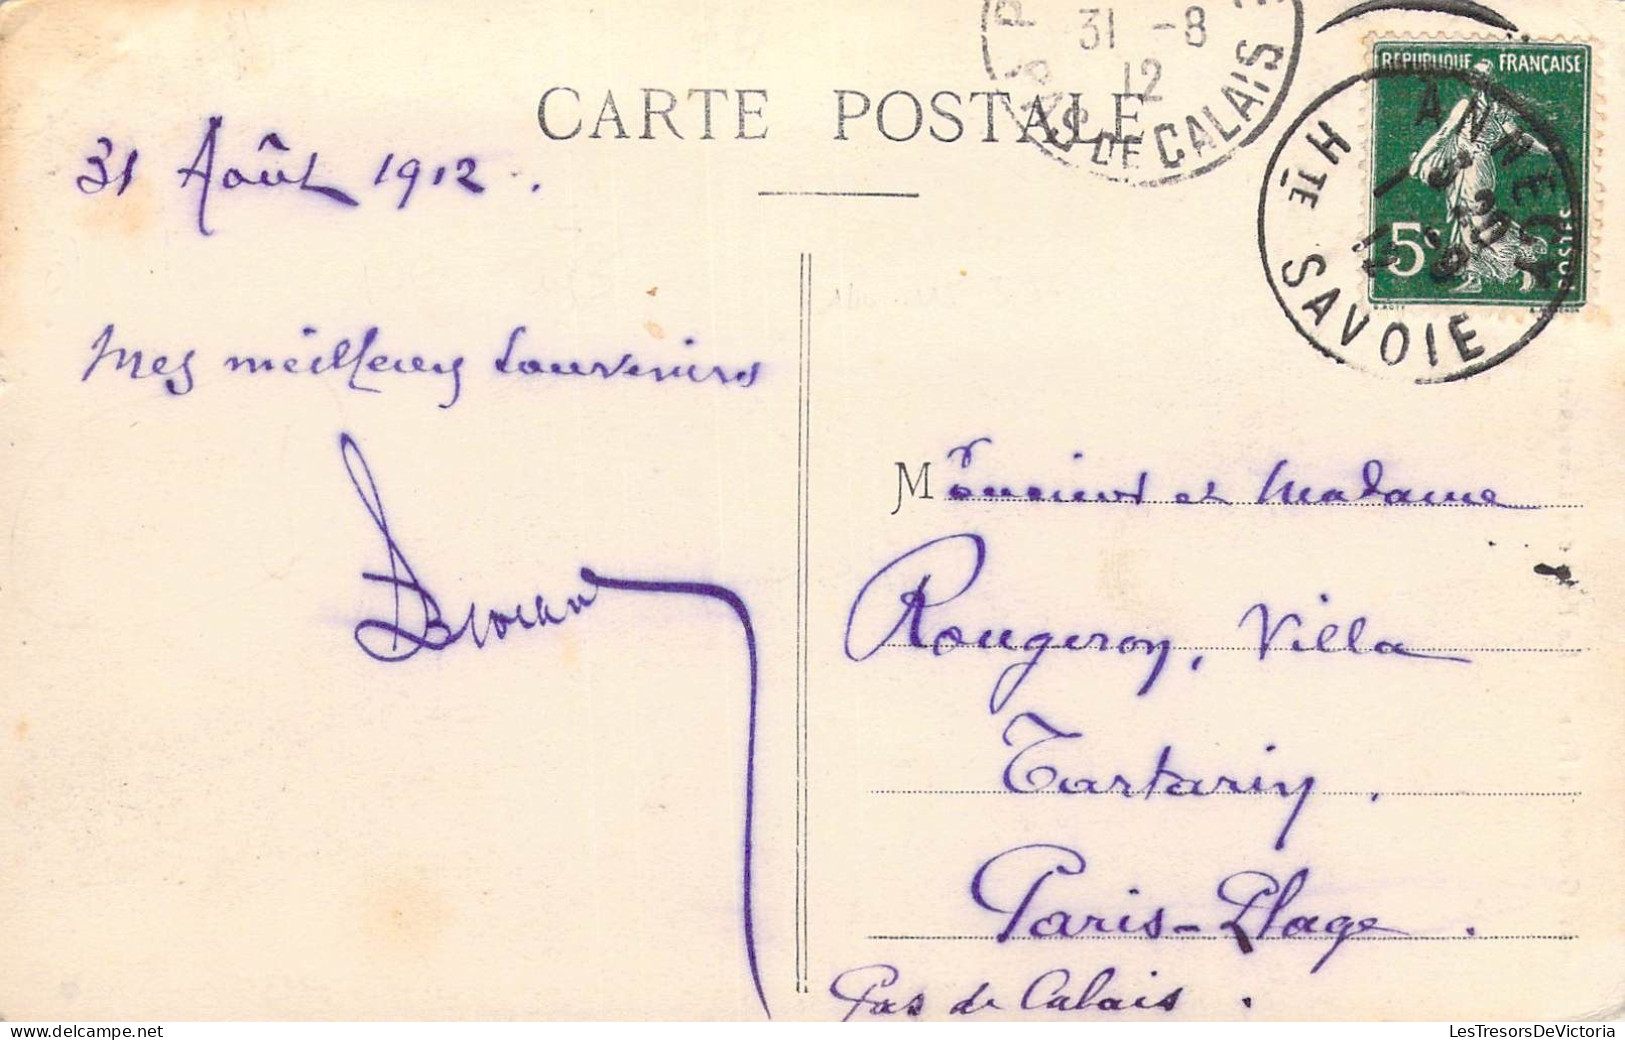 CARTE POSTALE
31 Août 1912.
Mes meilleurs souvenirs
31 -8
12
PAS DE CALAIS
REPUBLIQUE FRANÇAISE
5c
POSTES
ANNECY
HTE SAVOIE
1 -9
12
M Monsieur et Madame
Rougeron, Villa
Tartarin.
Paris-Plage.
Pas de Calais.
LesTresorsDeVictoria